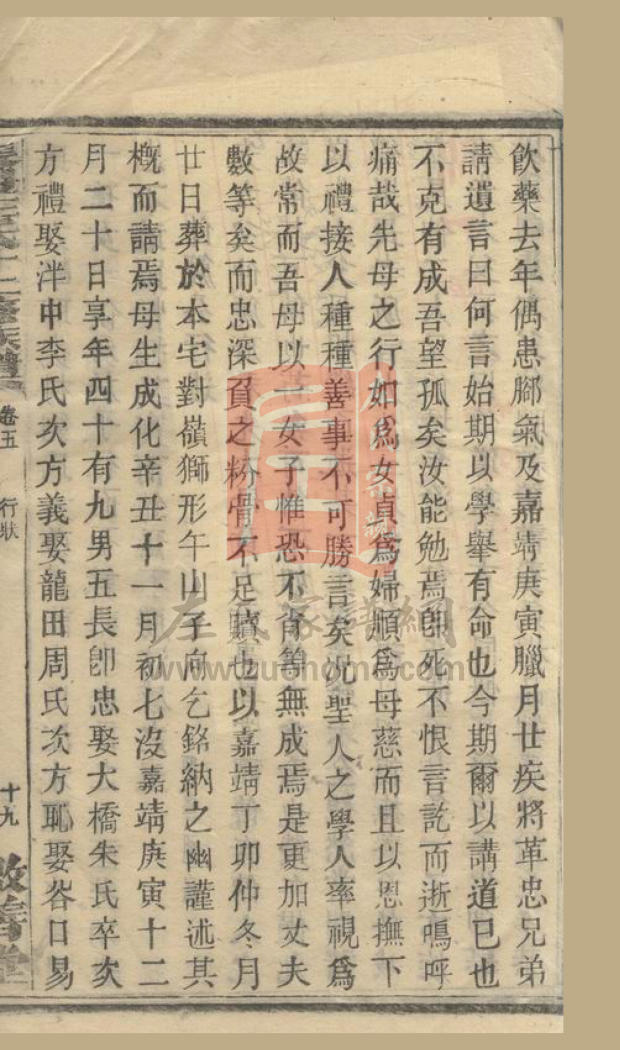 飲藥去年偶患腳氣及嘉靖庚寅臘月廿疾將革忠兄弟
請遺言曰何言始期以學舉有命也今期爾以講道已也
不克有成吾望孤矣汝能勉焉卽死不恨言訖而逝嗚呼
痛哉先母之行如爲女貞爲婦順爲母慈而且以恩撫下
以禮接人種種善事不可勝言矣況聖人之學人率視爲
故常而吾母以一女子惟恐不肖等無成焉是更加丈夫
數等矣而忠深負之粉骨不足贖也以嘉靖丁卯仲冬月
廿日葬於本宅對嶺獅形午山子向乞銘納之幽謹述其
概而請焉母生成化辛丑十一月初七沒嘉靖庚寅十二
月二十日享年四十有九男五長卽忠娶大橋朱氏卒次
方禮娶泮中李氏次方義娶龍田周氏次方恥娶谷口易
修族譜 卷五 行狀 十九
左氏家譜網
www.zuohome.com